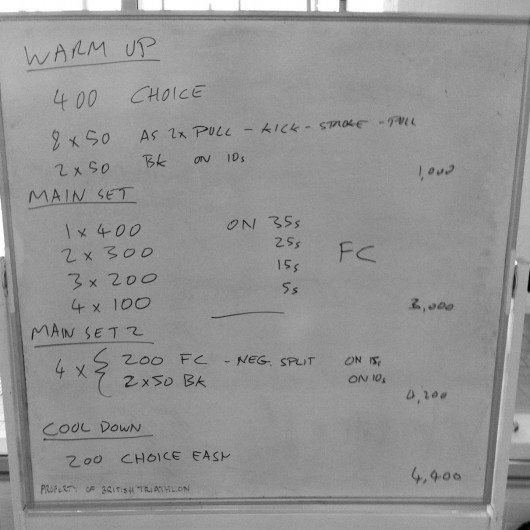 WARM UP
400 CHOICE
8 x 50 AS 2x PULL - KICK - STROKE - PULL
2 x 50 BK ON 10s
1,000
MAIN SET
1 x 400 ON 35s
2 x 300 25s
FC
3 x 200 15s
4 x 100 5s
3,000
MAIN SET 2
4 x { 200 FC - NEG. SPLIT ON 15s
2x50 BK ON 10s
4,200
COOL DOWN
200 CHOICE EASY
4,400
PROPERTY OF BRITISH TRIATHLON